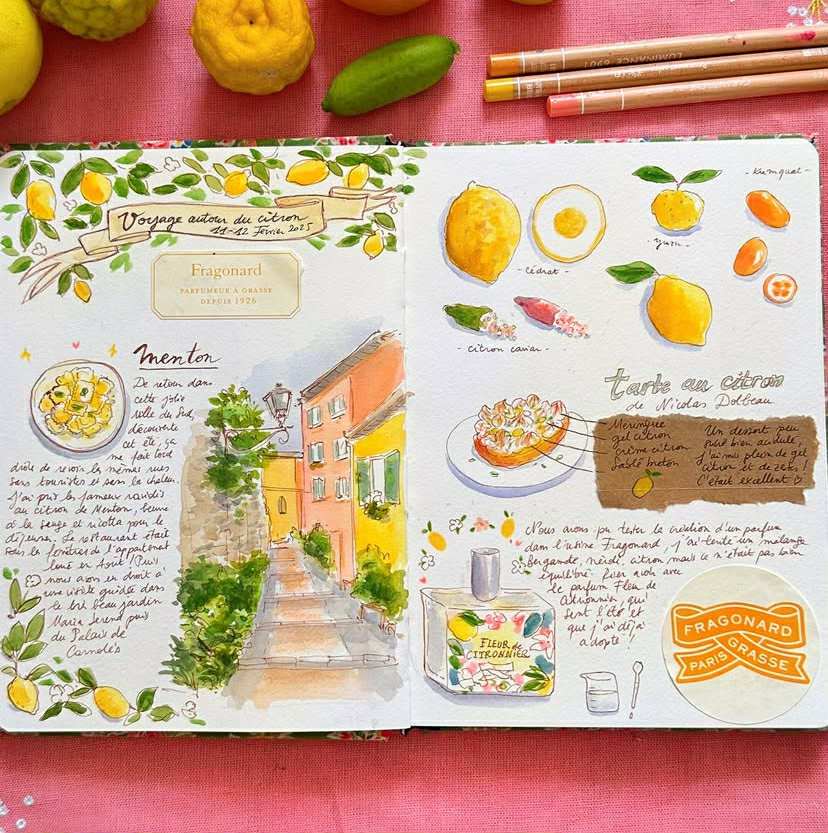 LUMINANCE 6901
Voyage autour du citron
11-12 Février 2025
Fragonard
PARFUMEUR À GRASSE
DEPUIS 1926
Menton
De retour dans
cette jolie
ville du Sud,
découverte
cet été, ça
me fait tout
drôle de revoir les mêmes rues
sans touristes et sans la chaleur.
J'ai pris les fameux raviolis
au citron de Menton, beurre
à la sauge et ricotta pour le
déjeuner. Le restaurant était
sous les fenêtres de l'appartement
loué en Août ! Puis
nous avons eu droit à
une visite guidée dans
le très beau jardin
Maria Serena puis
du Palais de
Carnolès
- cédrat -
- yuzu -
- kumquat -
- citron caviar -
tarte au citron
de Nicolas Dolbeau
Meringue
gel citron
crème citron
sablé breton
Un dessert peu
sucré bien acidulé,
j'ai mis plein de gel
citron et de zestes !
C'était excellent ♡
Nous avons pu tester la création d'un parfum
dans l'usine Fragonard, j'ai tenté un mélange
bergamote, néroli, citron mais ce n'était pas bien
équilibré. Rien à voir avec
le parfum Fleur de
Citronnier, qui
sent l'été et
que j'ai déjà
adopté !
FLEUR de
CITRONNIER
FRAGONARD
PARIS GRASSE